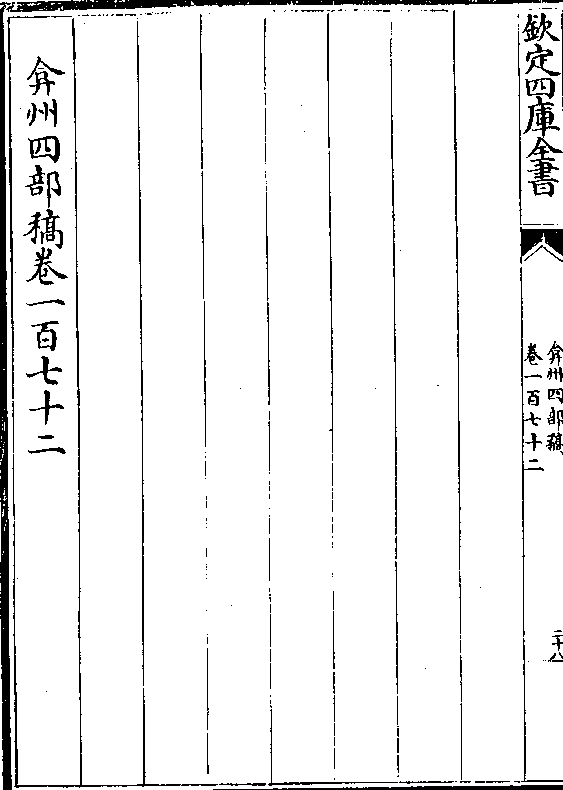 欽定四庫全書
弇州四部稿
卷一百七十二
二十八
弇州四部稿卷一百七十二